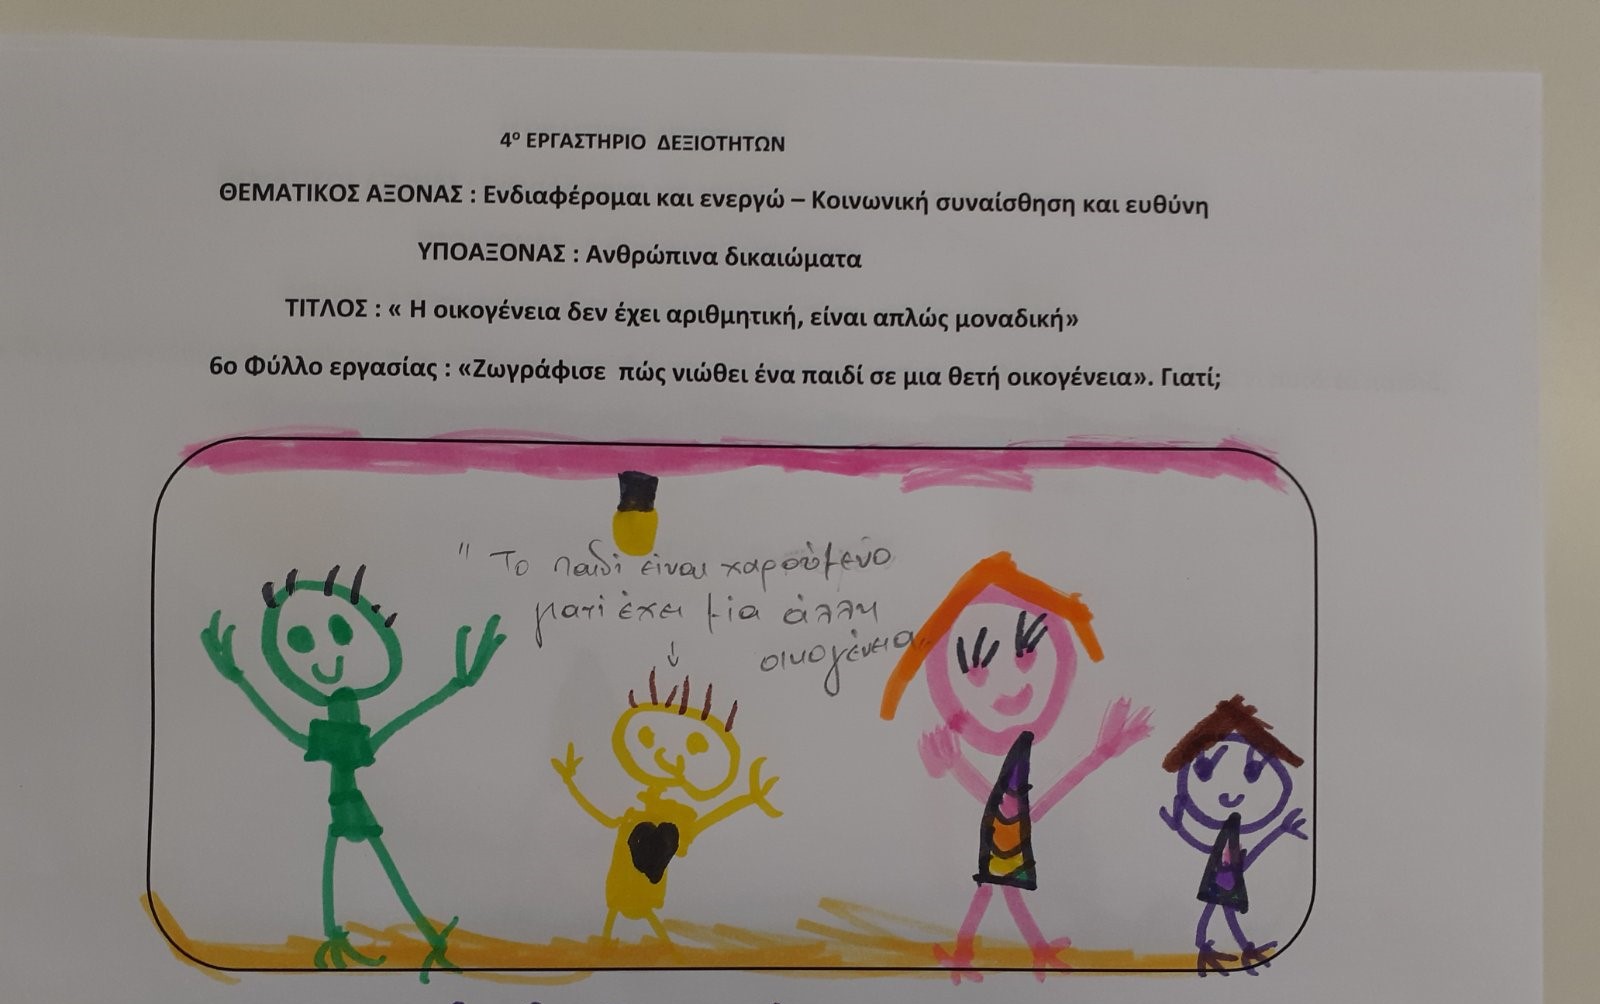 4ο ΕΡΓΑΣΤΗΡΙΟ ΔΕΞΙΟΤΗΤΩΝ
ΘΕΜΑΤΙΚΟΣ ΑΞΟΝΑΣ : Ενδιαφέρομαι και ενεργώ – Κοινωνική συναίσθηση και ευθύνη
ΥΠΟΑΞΟΝΑΣ : Ανθρώπινα δικαιώματα
ΤΙΤΛΟΣ : « Η οικογένεια δεν έχει αριθμητική, είναι απλώς μοναδική»
6ο Φύλλο εργασίας : «Ζωγράφισε πώς νιώθει ένα παιδί σε μια θετή οικογένεια». Γιατί;
" Το παιδί είναι χαρούμενο
γιατί έχει μία άλλη
οικογένεια"